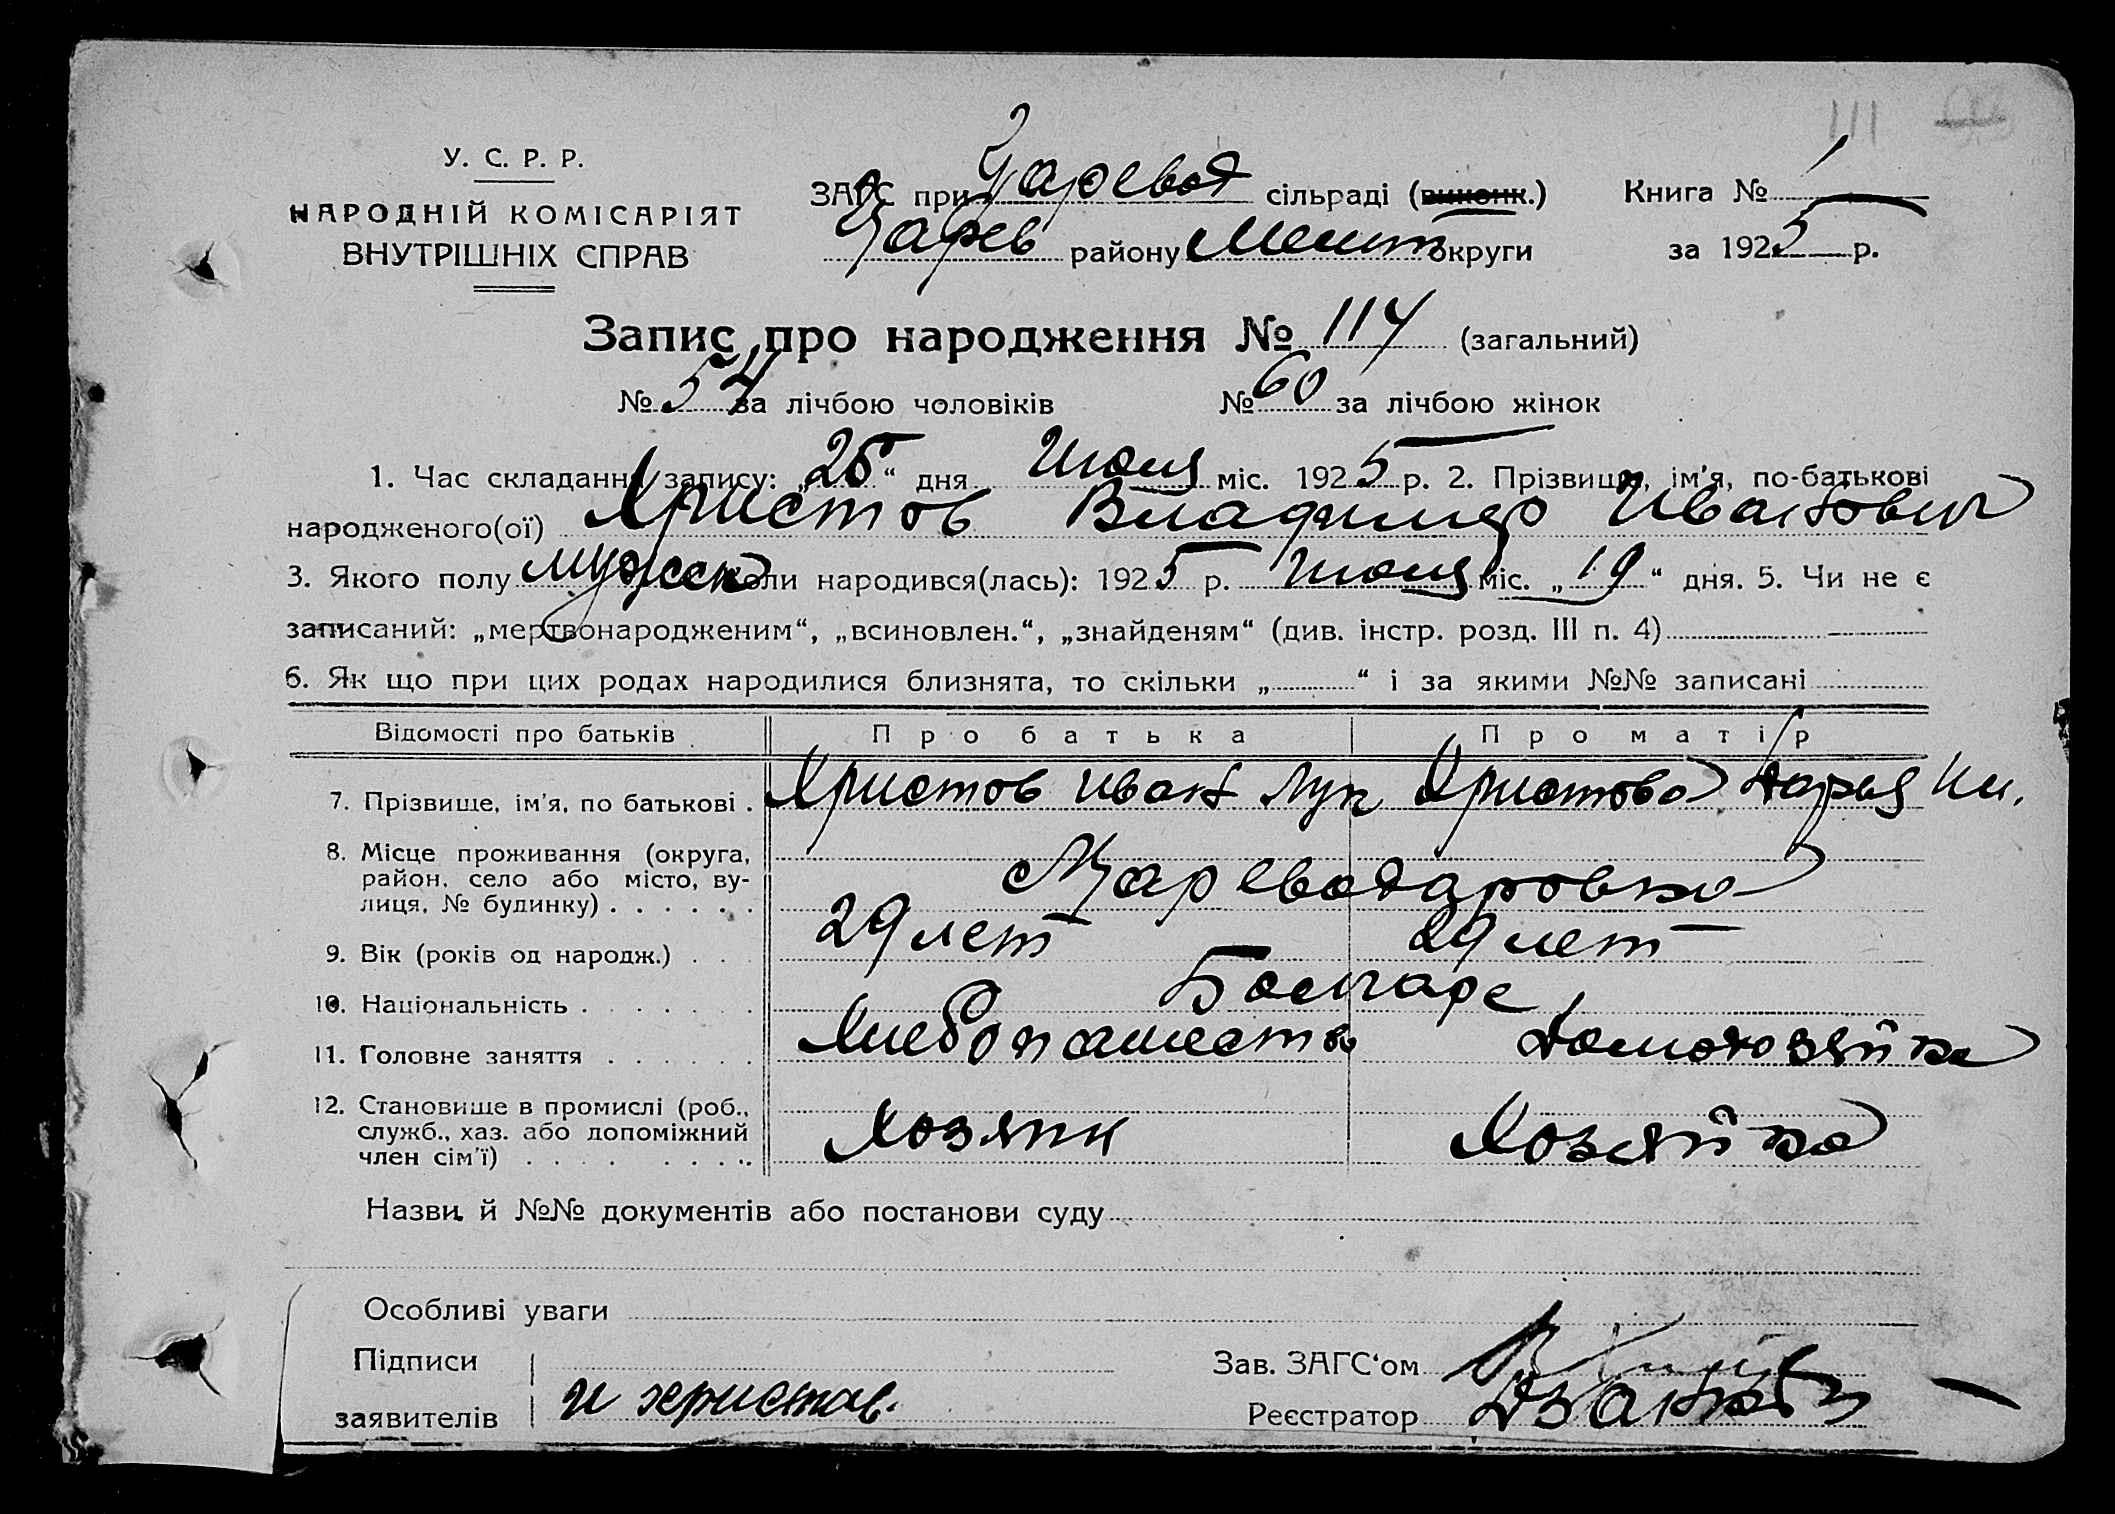 111
У. С. Р. Р.
НАРОДНІЙ КОМІСАРІЯТ
ВНУТРІШНІХ СПРАВ
ЗАГС при Царевод сільраді (виконк.)
Царев району Мелит округи
Книга № 1
за 1925 р.
Запис про народження № 114 (загальний)
№ 54 за лічбою чоловіків № 60 за лічбою жінок
1. Час складання запису: „25“ дня Июля міс. 1925 р. 2. Прізвище, ім’я, по-батькові
народженого(ої) Христов Владимир Иванович
3. Якого полу мужск коли народився(лась): 1925 р. Июля міс. „19“ дня. 5. Чи не є
записаний: „мертвонародженим“, „всиновлен.“, „знайденям“ (див. інстр. розд. III п. 4)
6. Як що при цих родах народилися близнята, то скільки „ “ і за якими №№ записані
Відомості про батьків Про батька Про матір
7. Прізвище, ім’я, по батькові . Христов Иван Лук Христова Дарья Ив.
8. Місце проживання (округа,
район, село або місто, ву-
лиця, № будинку) . . . . . . Цареводаровка
9. Вік (років од народж.) . . . 29 лет 29 лет
10. Національність . . . . . . . Болгаре
11. Головне заняття . . . . . . Хлебопашество Домохозяйка
12. Становище в промислі (роб.,
служб., хаз. або допоміжний
член сім’ї) . . . . . . . . . Хозяин Хозяйка
Назви й №№ документів або постанови суду
Особливі уваги
Підписи
заявителів И христов.
Зав. ЗАГС‘ом
Реєстратор